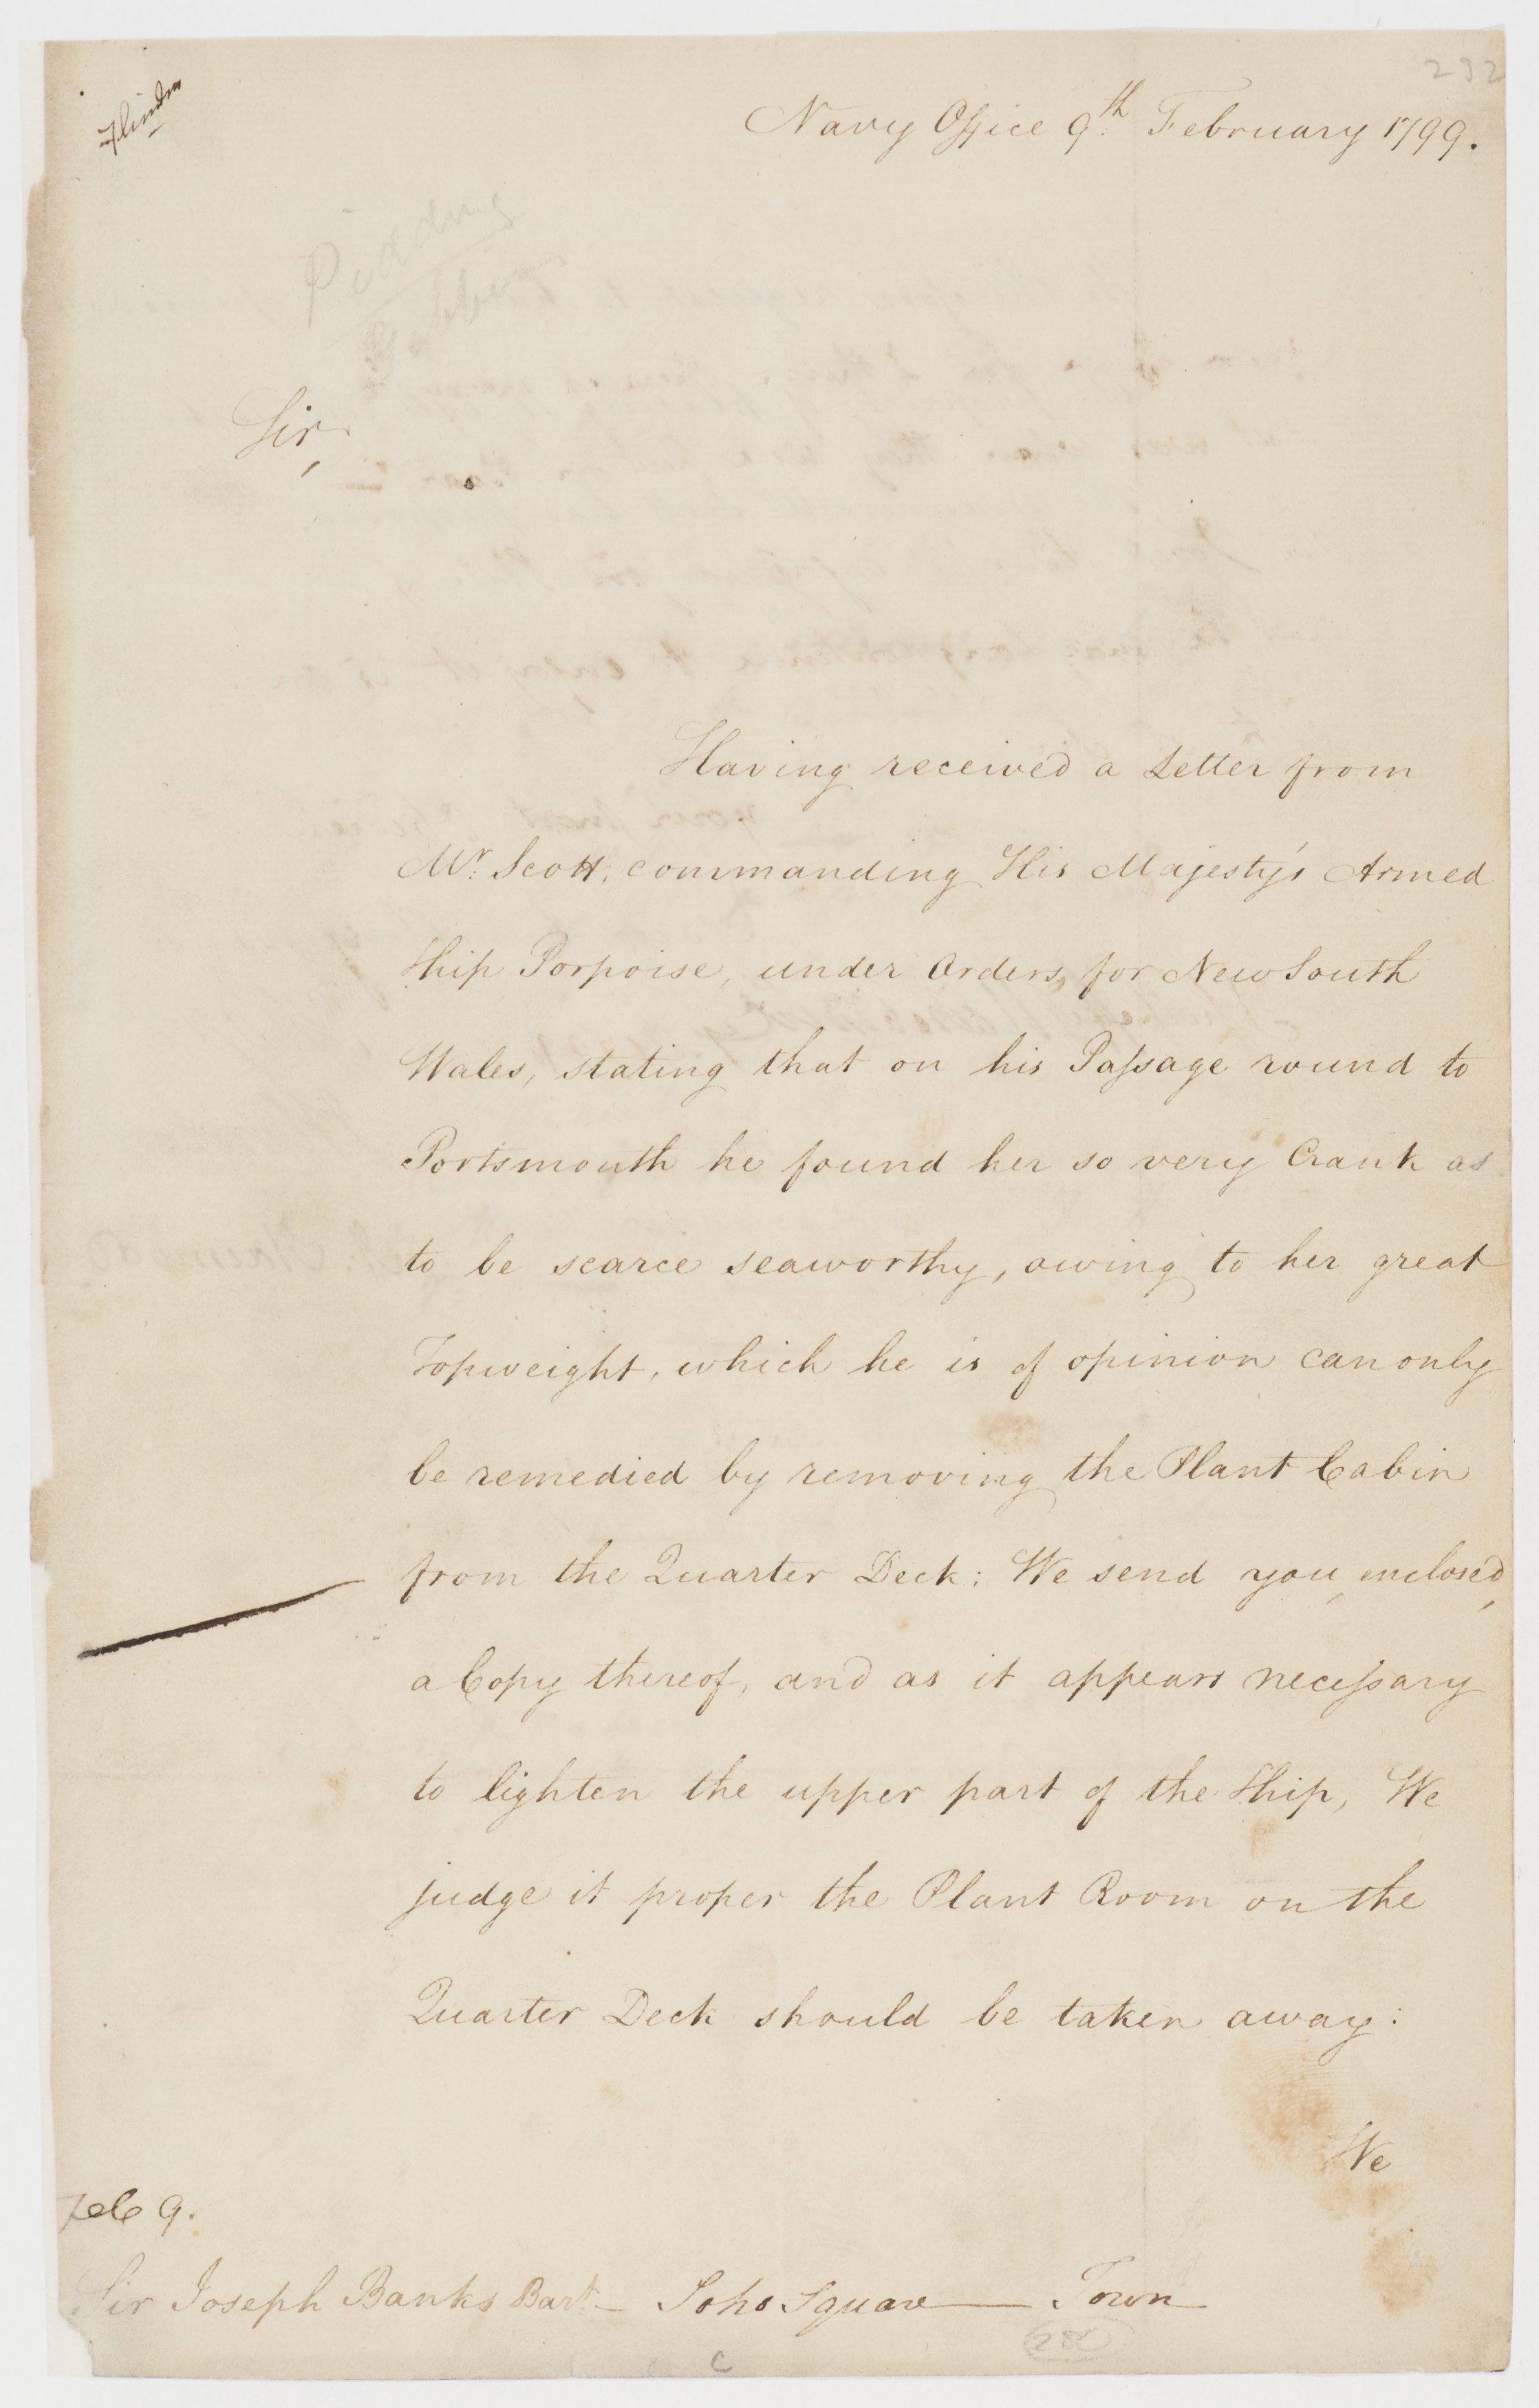 232
Flinders
Navy Office 9th February 1799.
Sir,
Having received a Letter from
Mr. Scott, commanding His Majesty's Armed
Ship Porpoise, under Orders, for New South
Wales, stating that on his Paſsage round to
Portsmouth he found her so very Crank as
to be scarce seaworthy, owing to her great
Topweight, which he is of opinion can only
be remedied by removing the Plant Cabin
from the Quarter Deck: We send you, enclosed,
a Copy thereof, and as it appears neceſsary
to lighten the upper part of the Ship, We
judge it proper the Plant Room on the
Quarter Deck should be taken away:
We
Feb 9.
Sir Joseph Banks Bart. Soho Square Town
C